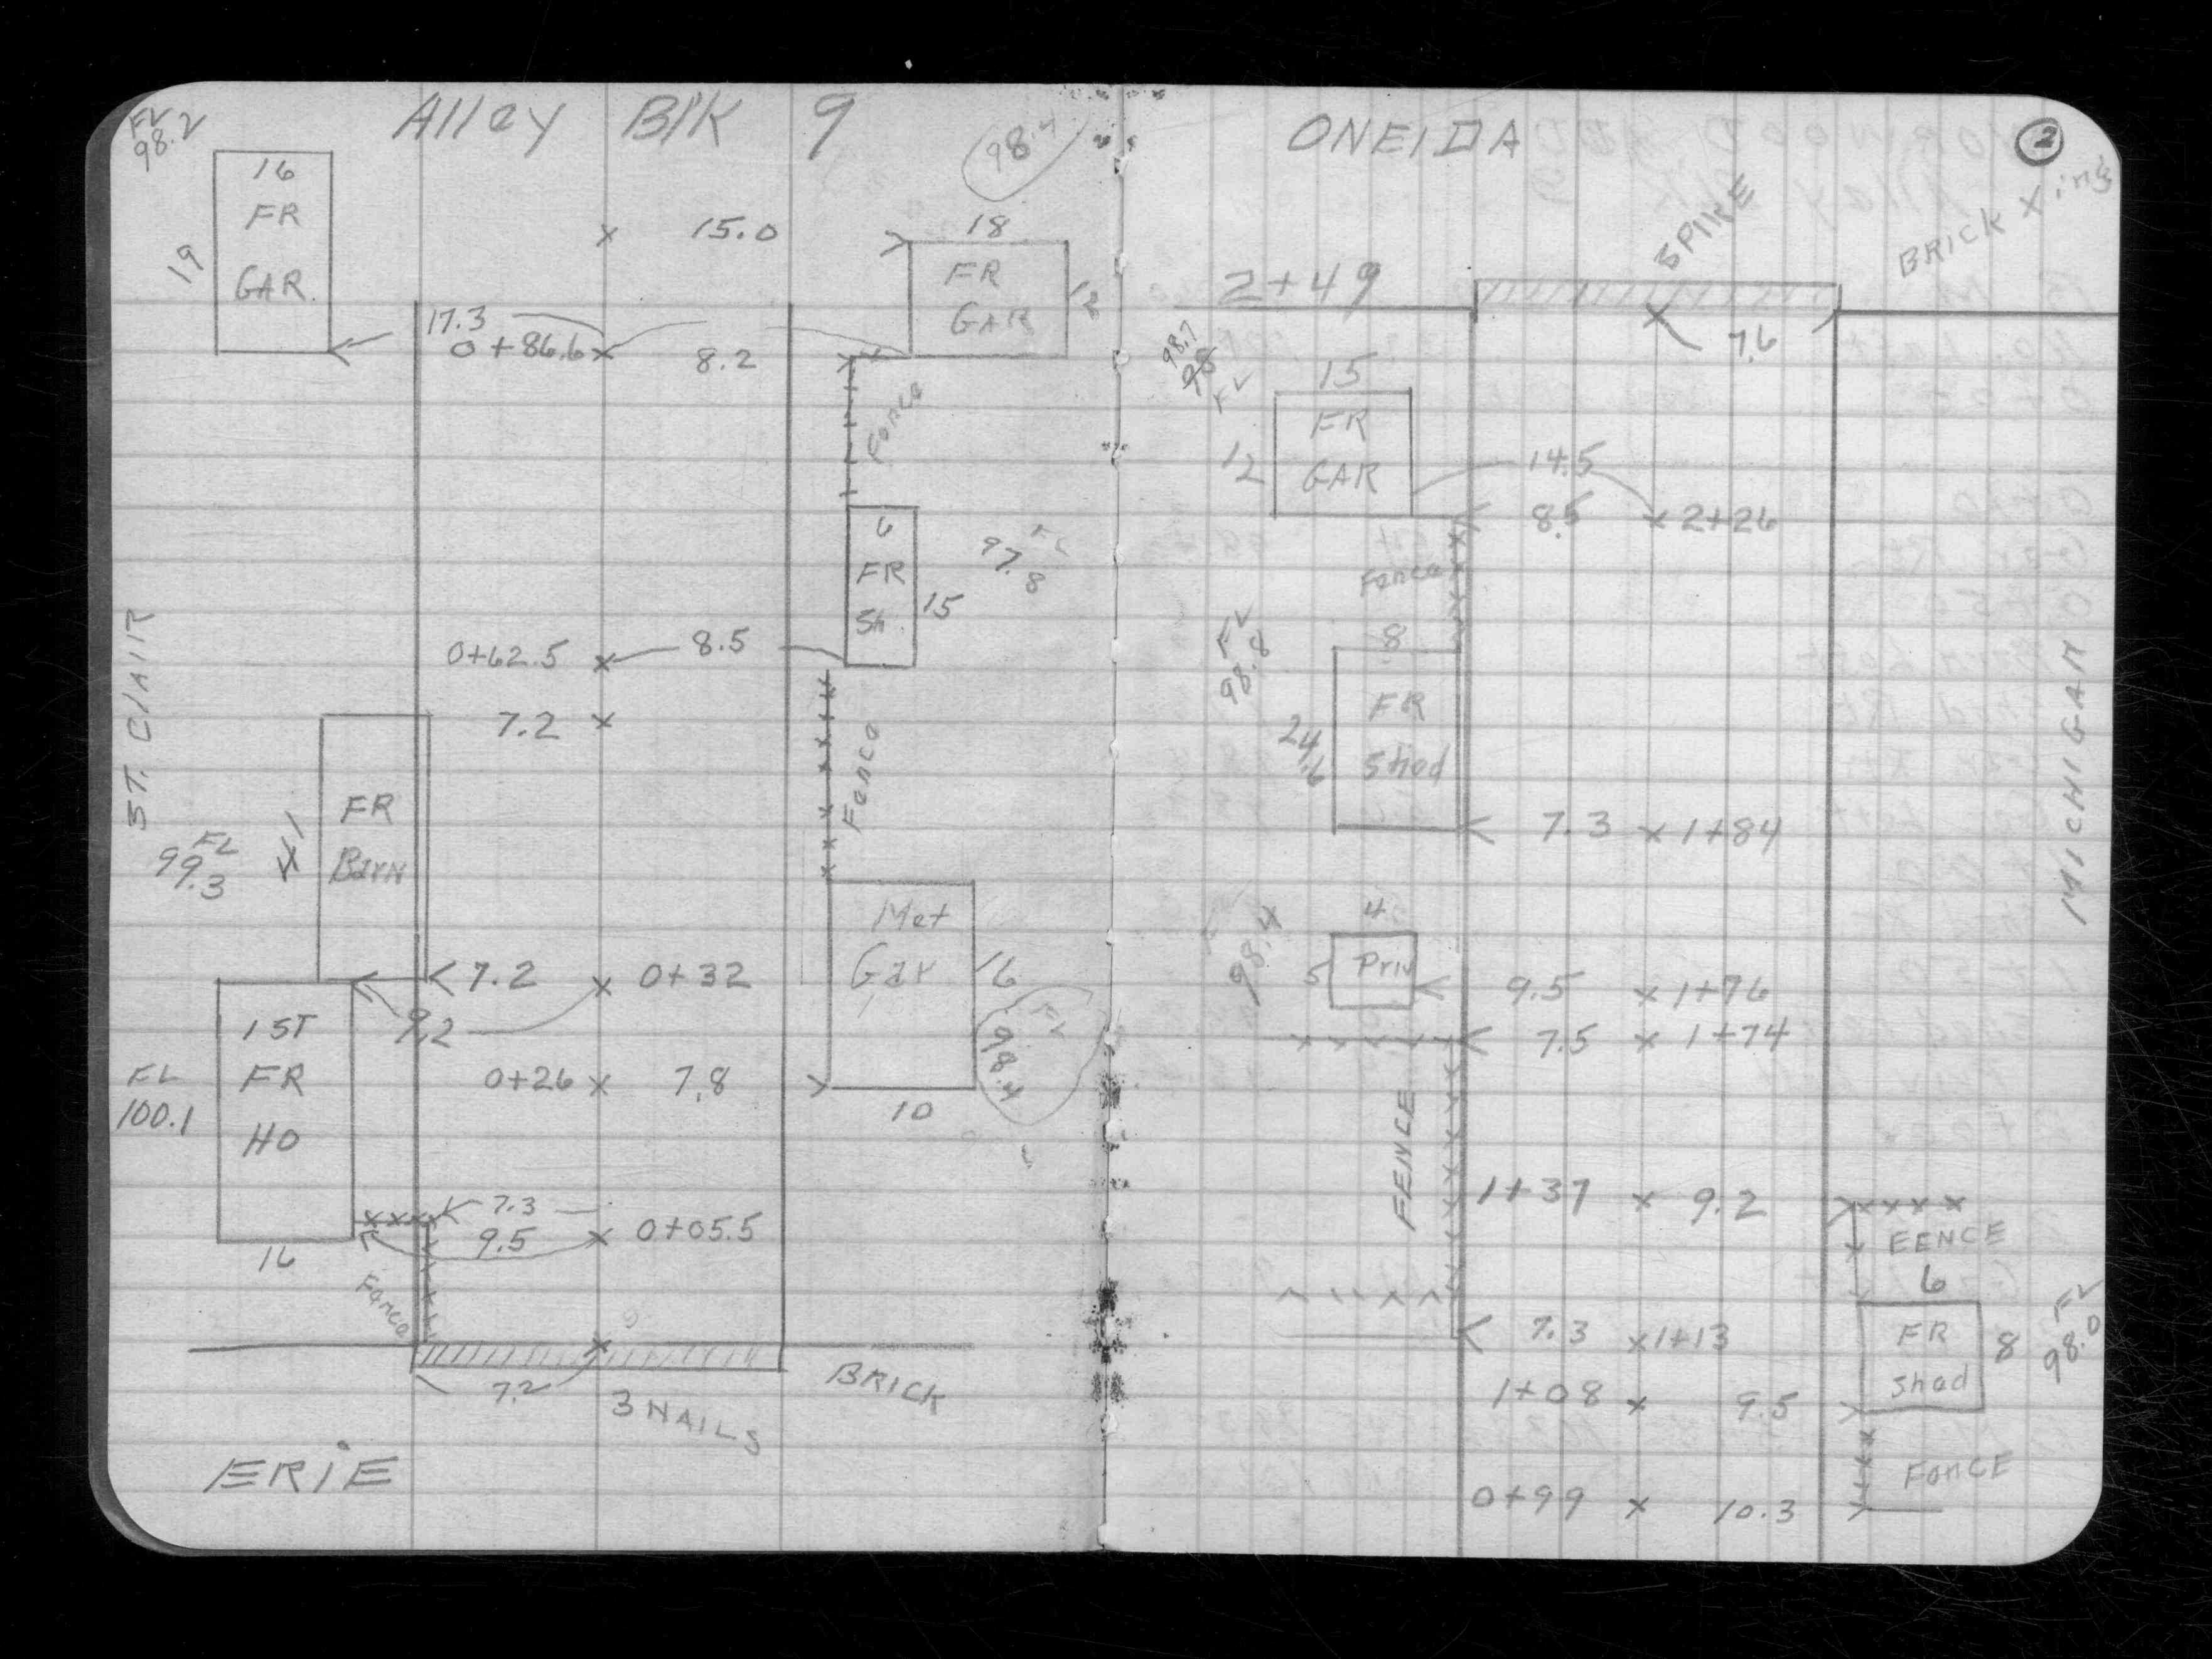 Alley Blk 9
FL
98.2
16
FR
GAR.
19
98.4
x 15.0
18
FR
GAR
12
17.3
0+86.6 x 8.2
Fence
6
FR
Sh.
15
FL
97.8
0+62.5 x 8.5
7.2 x
ST. CLAIR
FR
Barn
FL
99.3
Fence
Met
Gar
16
10
FL
98.4
7.2 x 0+32
9.2
1 ST
FR
HO
FL
100.1
16
0+26 x 7.8
7.3
9.5 x 0+05.5
Fence
7.2
3 NAILS
BRICK
ERIE
ONEIDA
2
SPIKE
BRICK X ing
2+49
7.6
98.7
98
FL
15
FR
GAR
12
14.5
8.5 x 2+26
Fence
8
FR
Shed
24.6
FL
98.8
7.3 x 1+84
MICHIGAN
4
Priv
5
98.4
9.5 x 1+76
7.5 x 1+74
FENCE
1+37 x 9.2
FENCE
6
FR
Shed
8
FL
98.0
7.3 x 1+13
1+08 x 9.5
0+99 x 10.3
FenCE